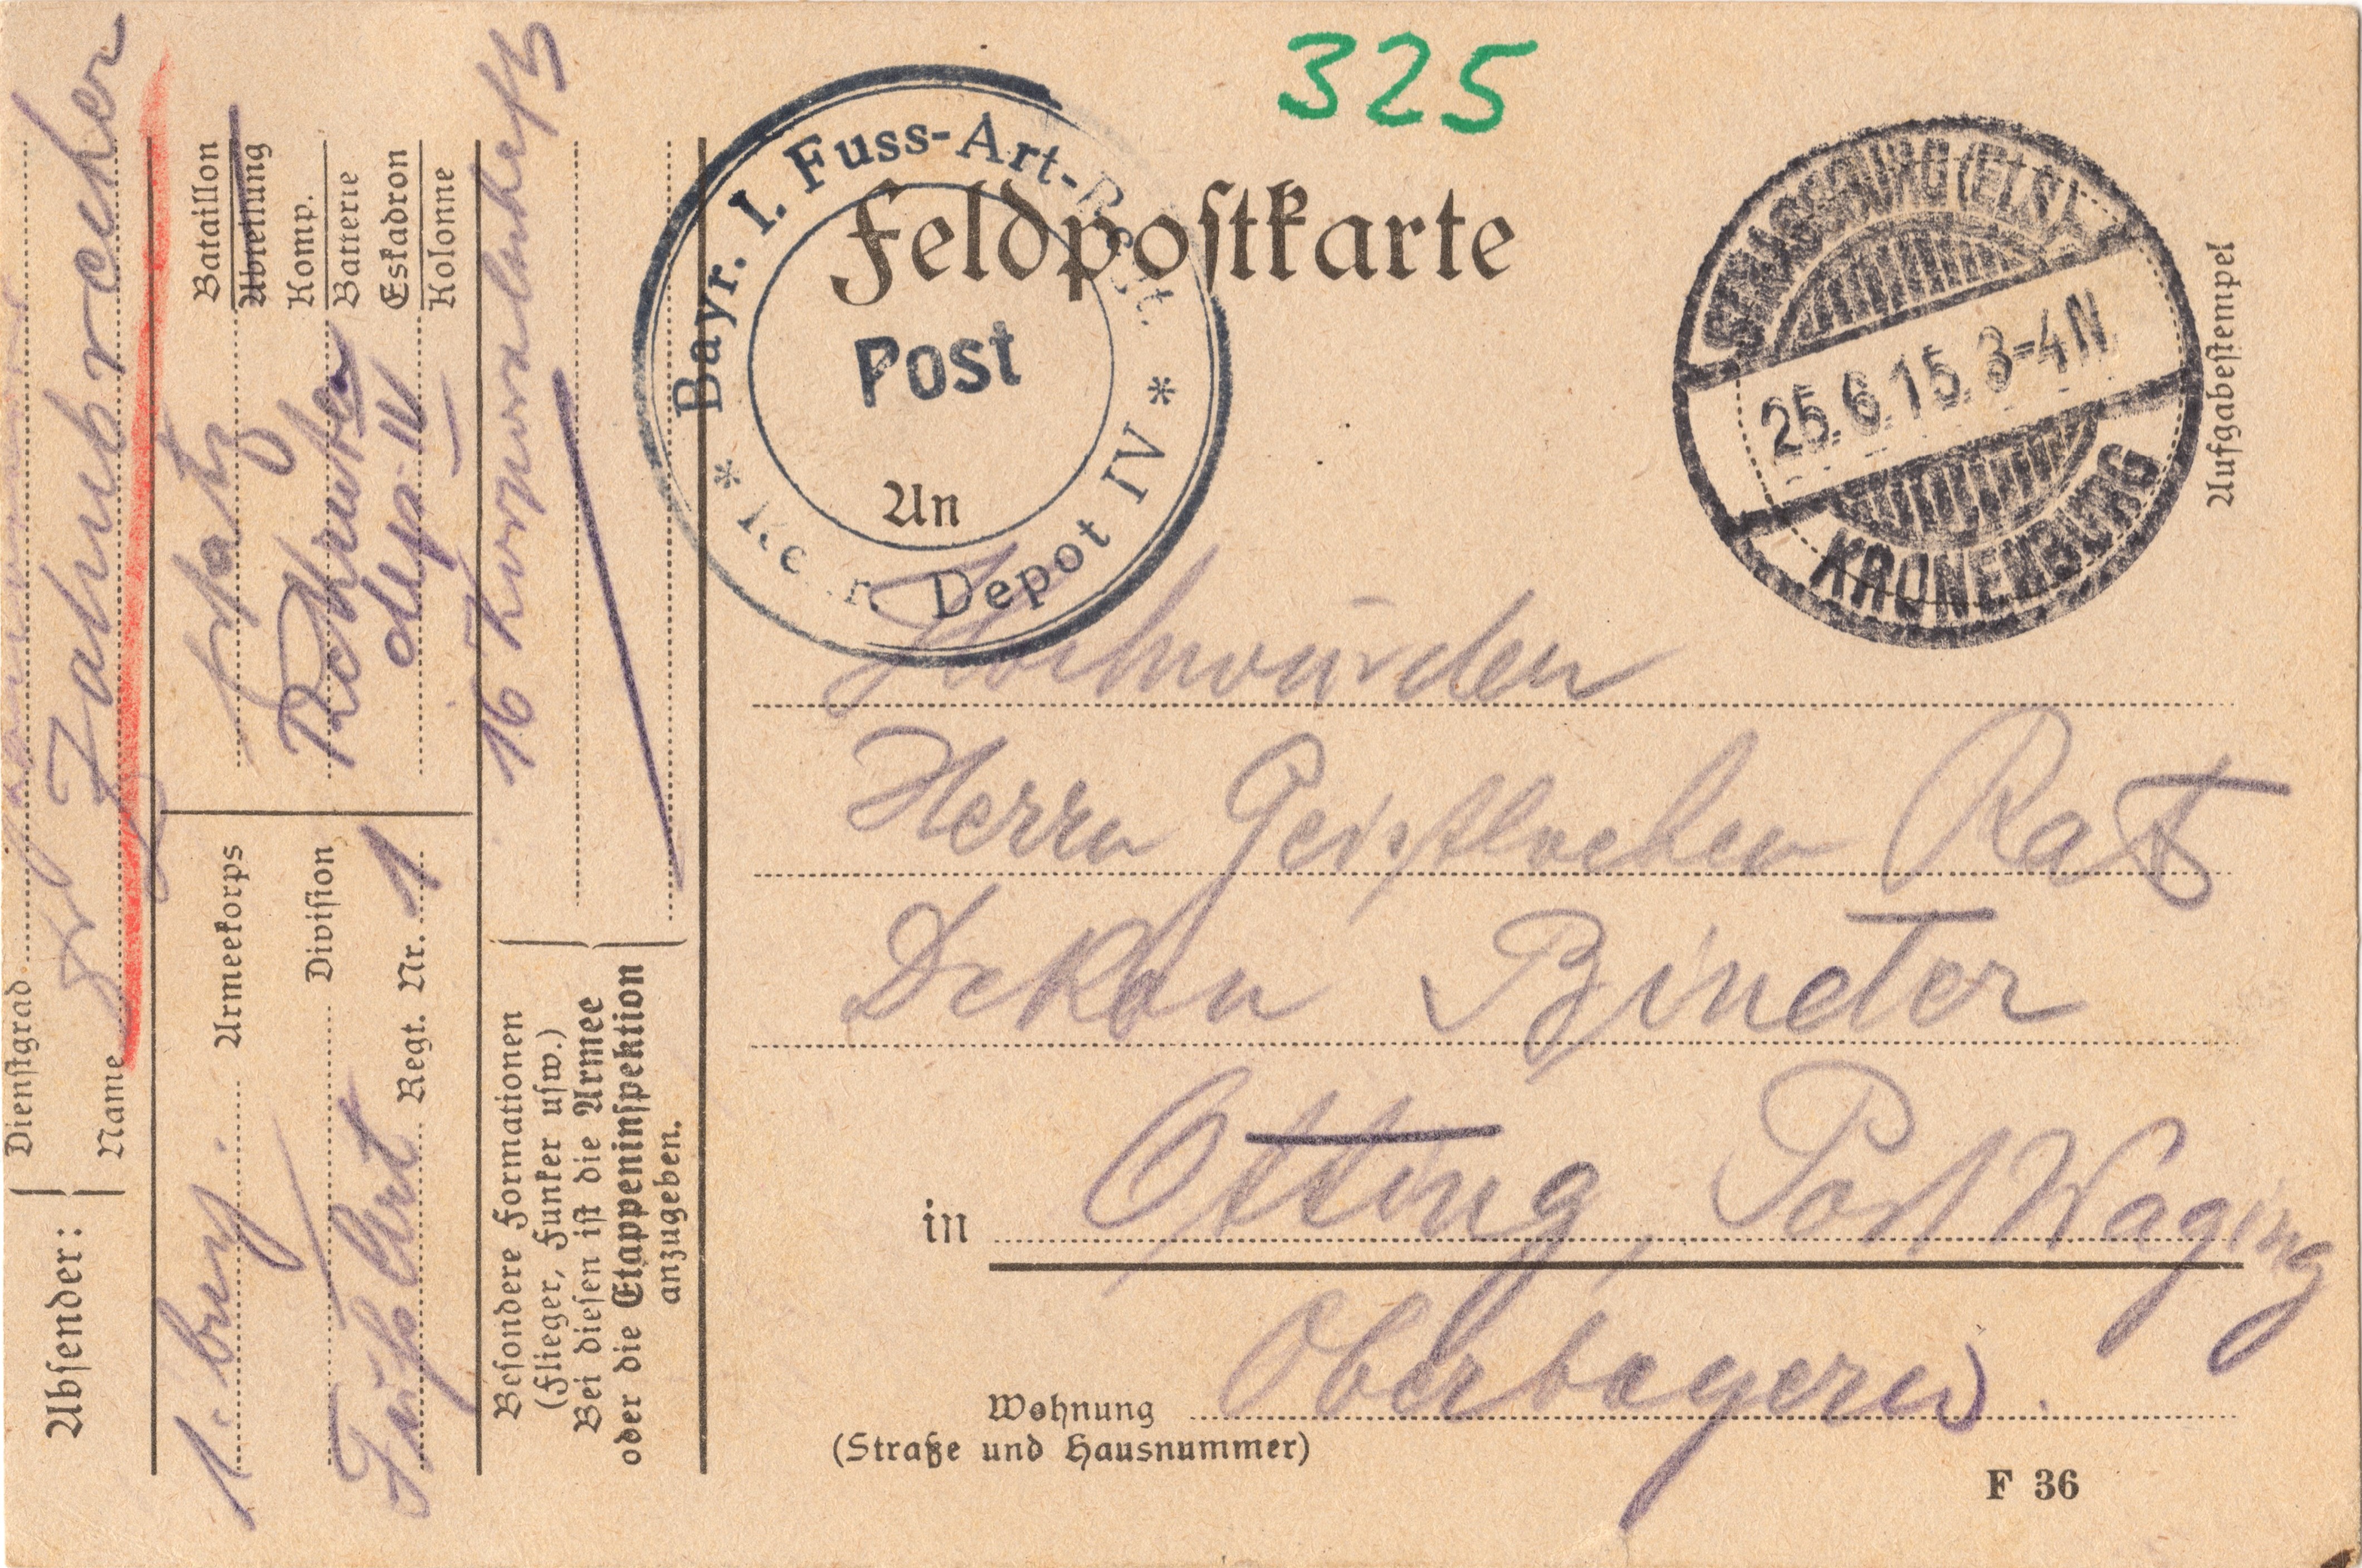 325
Feldpostkarte
Bayr. I. Fuss-Art-Regt.
Post
* Depot IV *
STRASSBURG (ELS)
25.6.15. 3-4N
KRONENBURG
Aufgabestempel
An
Hochwürden
Herrn Geistlichen Rat
Dekan Binder
in Otting, Post Waging
Oberbayern.
Wohnung
(Straße und Hausnummer)
F 36
Absender:
Dienstgrad
Name
1. bay. Armeekorps
Division
Fuß Art Regt. Nr. 1
Ersatz Bataillon
Abteilung
Rekruten Komp.
Batterie
dep. IV Eskadron
Kolonne
Besondere Formationen
(Flieger, Funker usw.)
Bei diesen ist die Armee
oder die Etappeninspektion
anzugeben.
16 Korporalschaft